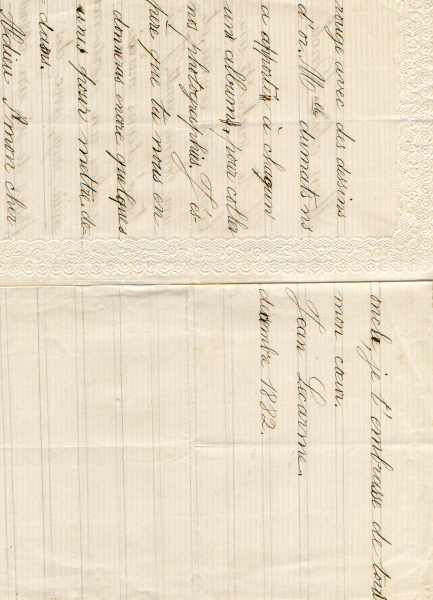 rouge avec des dessins
d'or. Mlle dumatins
a apporté à chaqun
un album, pour coller
nos photographies. J'és-
père que tu nous en
donneras encore quelques
unes pour mettre de-
= dans.
Adieu mon cher
oncle, je t'embrasse de tout
mon cœur.
Jean Lecarme.
décembre 1882.